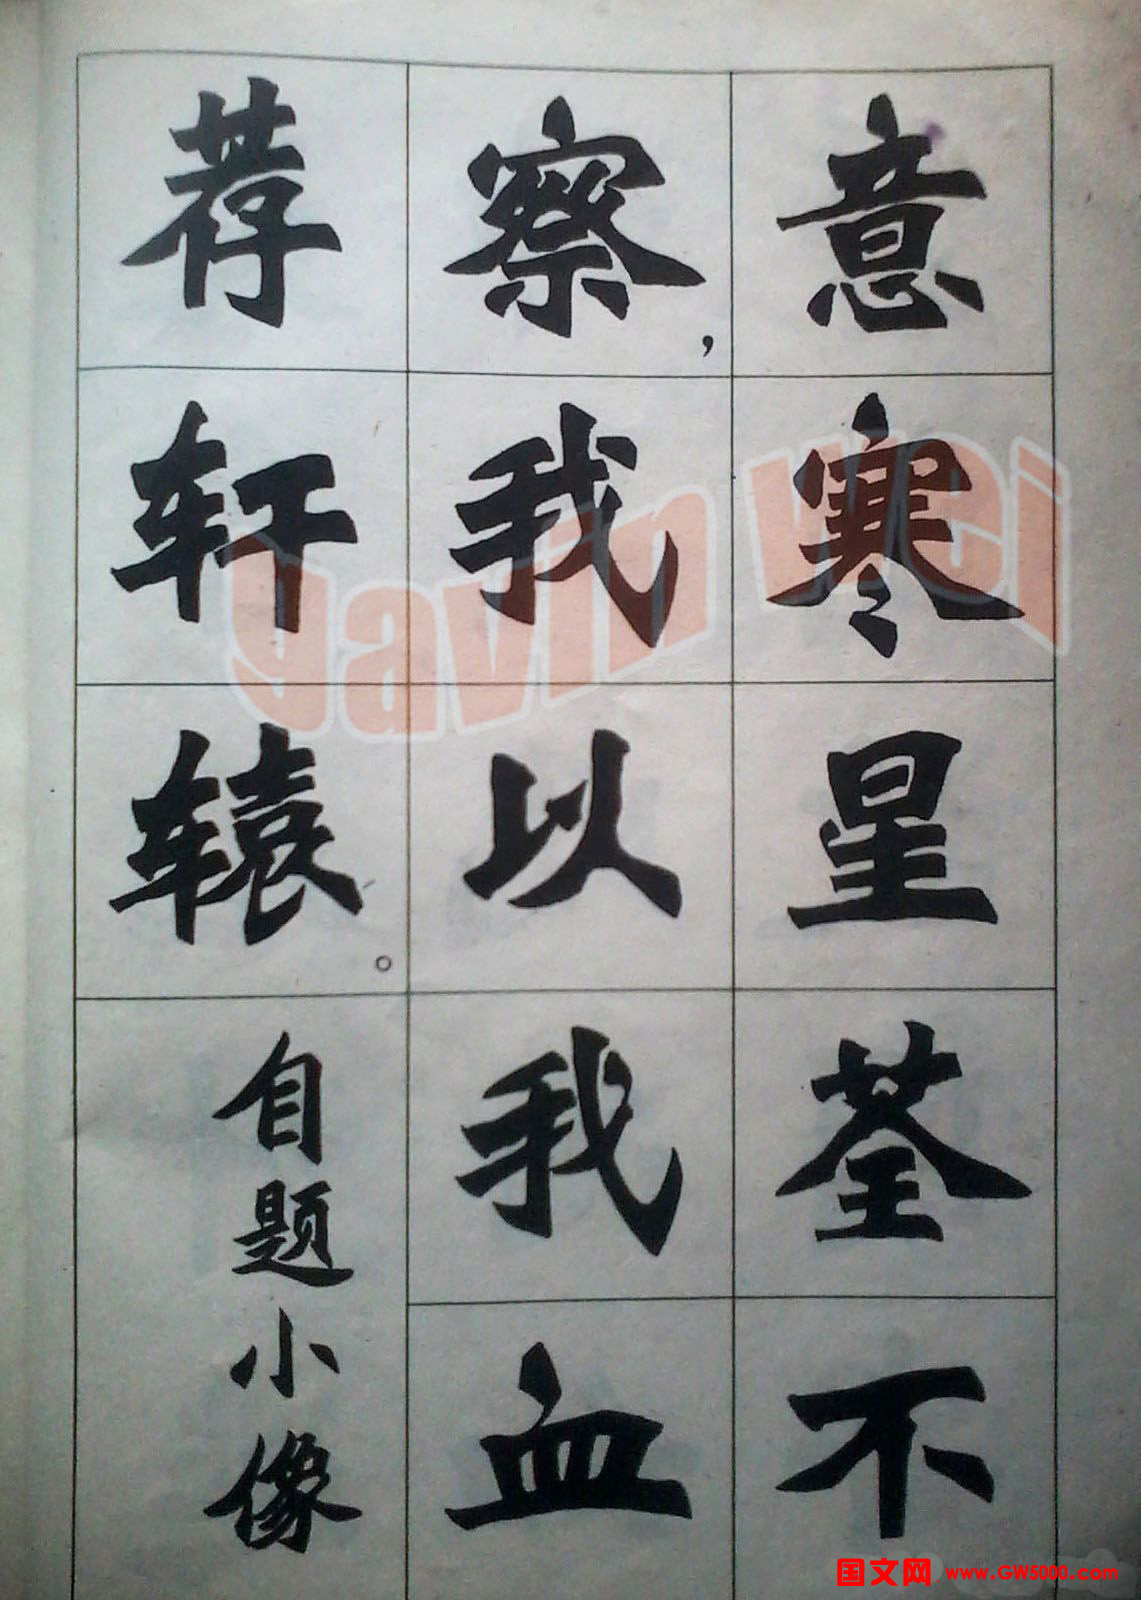 意寒星荃不
察，我以我血
荐轩辕。
自题小像
yavin wei
国文网 www.GW5000.com